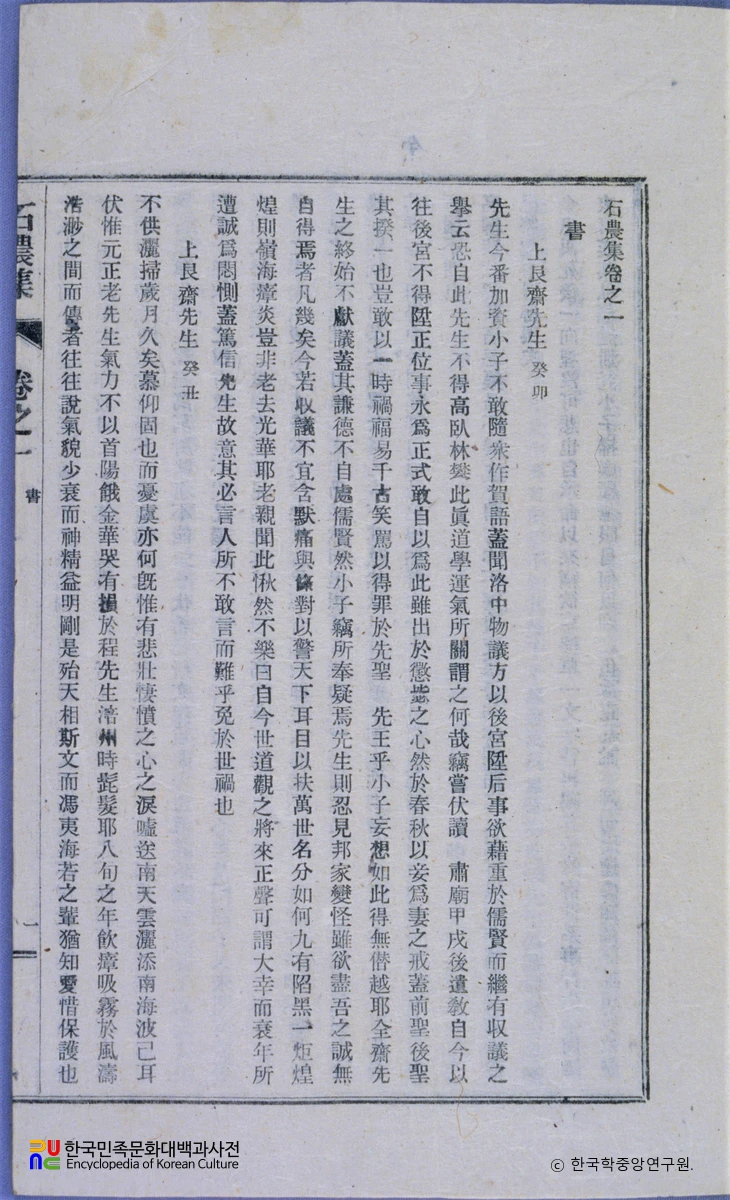 石農集卷之一
書
上艮齋先生 癸卯
先生今番加資小子不敢隨衆作賀語蓋聞洛中物議方以後宮陞后事欲藉重於儒賢而繼有収議之
擧云恐自此先生不得高臥林樊此眞道學運氣所關謂之何哉竊嘗伏讀 肅廟甲戌後遣敎自今以
往後宮不得陞正位事永爲正式敢自以爲此雖出於懲毖之心然於春秋以妾爲妻之戒蓋前聖後聖
其揆一也豈敢以一時禍福易千古笑罵以得罪於先聖 先王乎小子妄想如此得無僭越耶全齋先
生之終始不獻議蓋其謙德不自處儒賢然小子竊所奉疑焉先生則忍見邦家變怪雖欲盡吾之誠無
自得焉者凡幾矣今若収議不宜含默痛與條對以警天下耳目以扶萬世名分如何九有陷黑一炬煌
煌則嶺海瘴炎豈非老去光華耶老親聞此愀然不樂曰自今世道觀之將來正聲可謂大幸而衰年所
遭誠爲悶惻蓋篤信先生故意其必言人所不敢言而難乎免於世禍也
上艮齋先生 癸丑
不供灑掃歲月久矣慕仰固也而憂虞亦何旣惟有悲壯悽憤之心之淚噓送南天雲灑添南海波已耳
伏惟元正老先生氣力不以首陽餓金華哭有損於程先生涪州時髭髮耶八旬之年飮瘴吸霧於風濤
浩渺之間而傳者往往說氣貌少衰而神精益明剛是殆天相斯文而馮夷海若之輩猶知愛惜保護也
石農集 卷之一 書 一
한국민족문화대백과사전
Encyclopedia of Korean Culture
ⓒ 한국학중앙연구원.